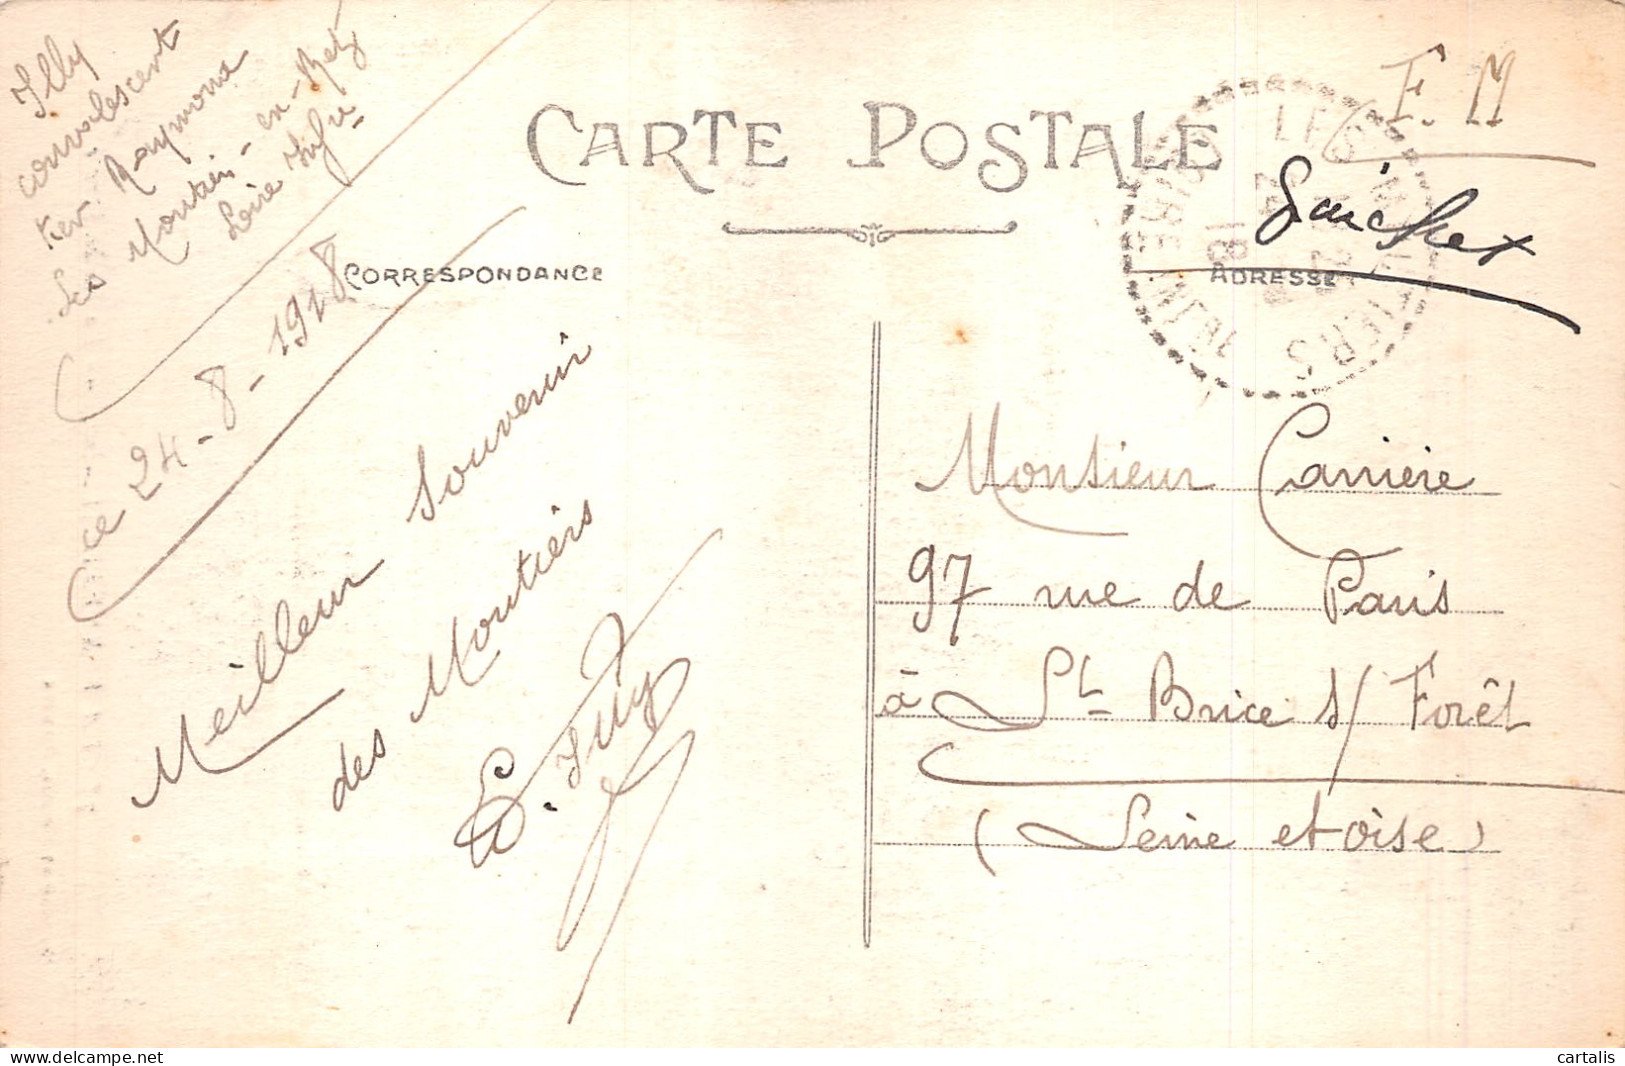 Illy
convalescent
Ker Raymond
Les Moutiers-en-Retz
Loire Infre
CARTE POSTALE
F. M
CORRESPONDANCE
ADRESSE
LES MOUTIERS
LOIRE INFRE
24
18
ce 24-8-1918
Meilleur Souvenir
des Moutiers
E. Illy
Monsieur Carrière
97 rue de Paris
à St Brice s/ Forêt
(Seine et oise)
cartalis